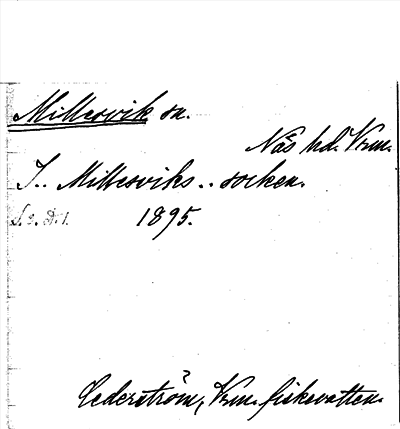 Millesvik sn.
Näs hd. Vrm.
I.. Millesviks.. socken.
1895.
Cederström, Vrm. fiskevatten.